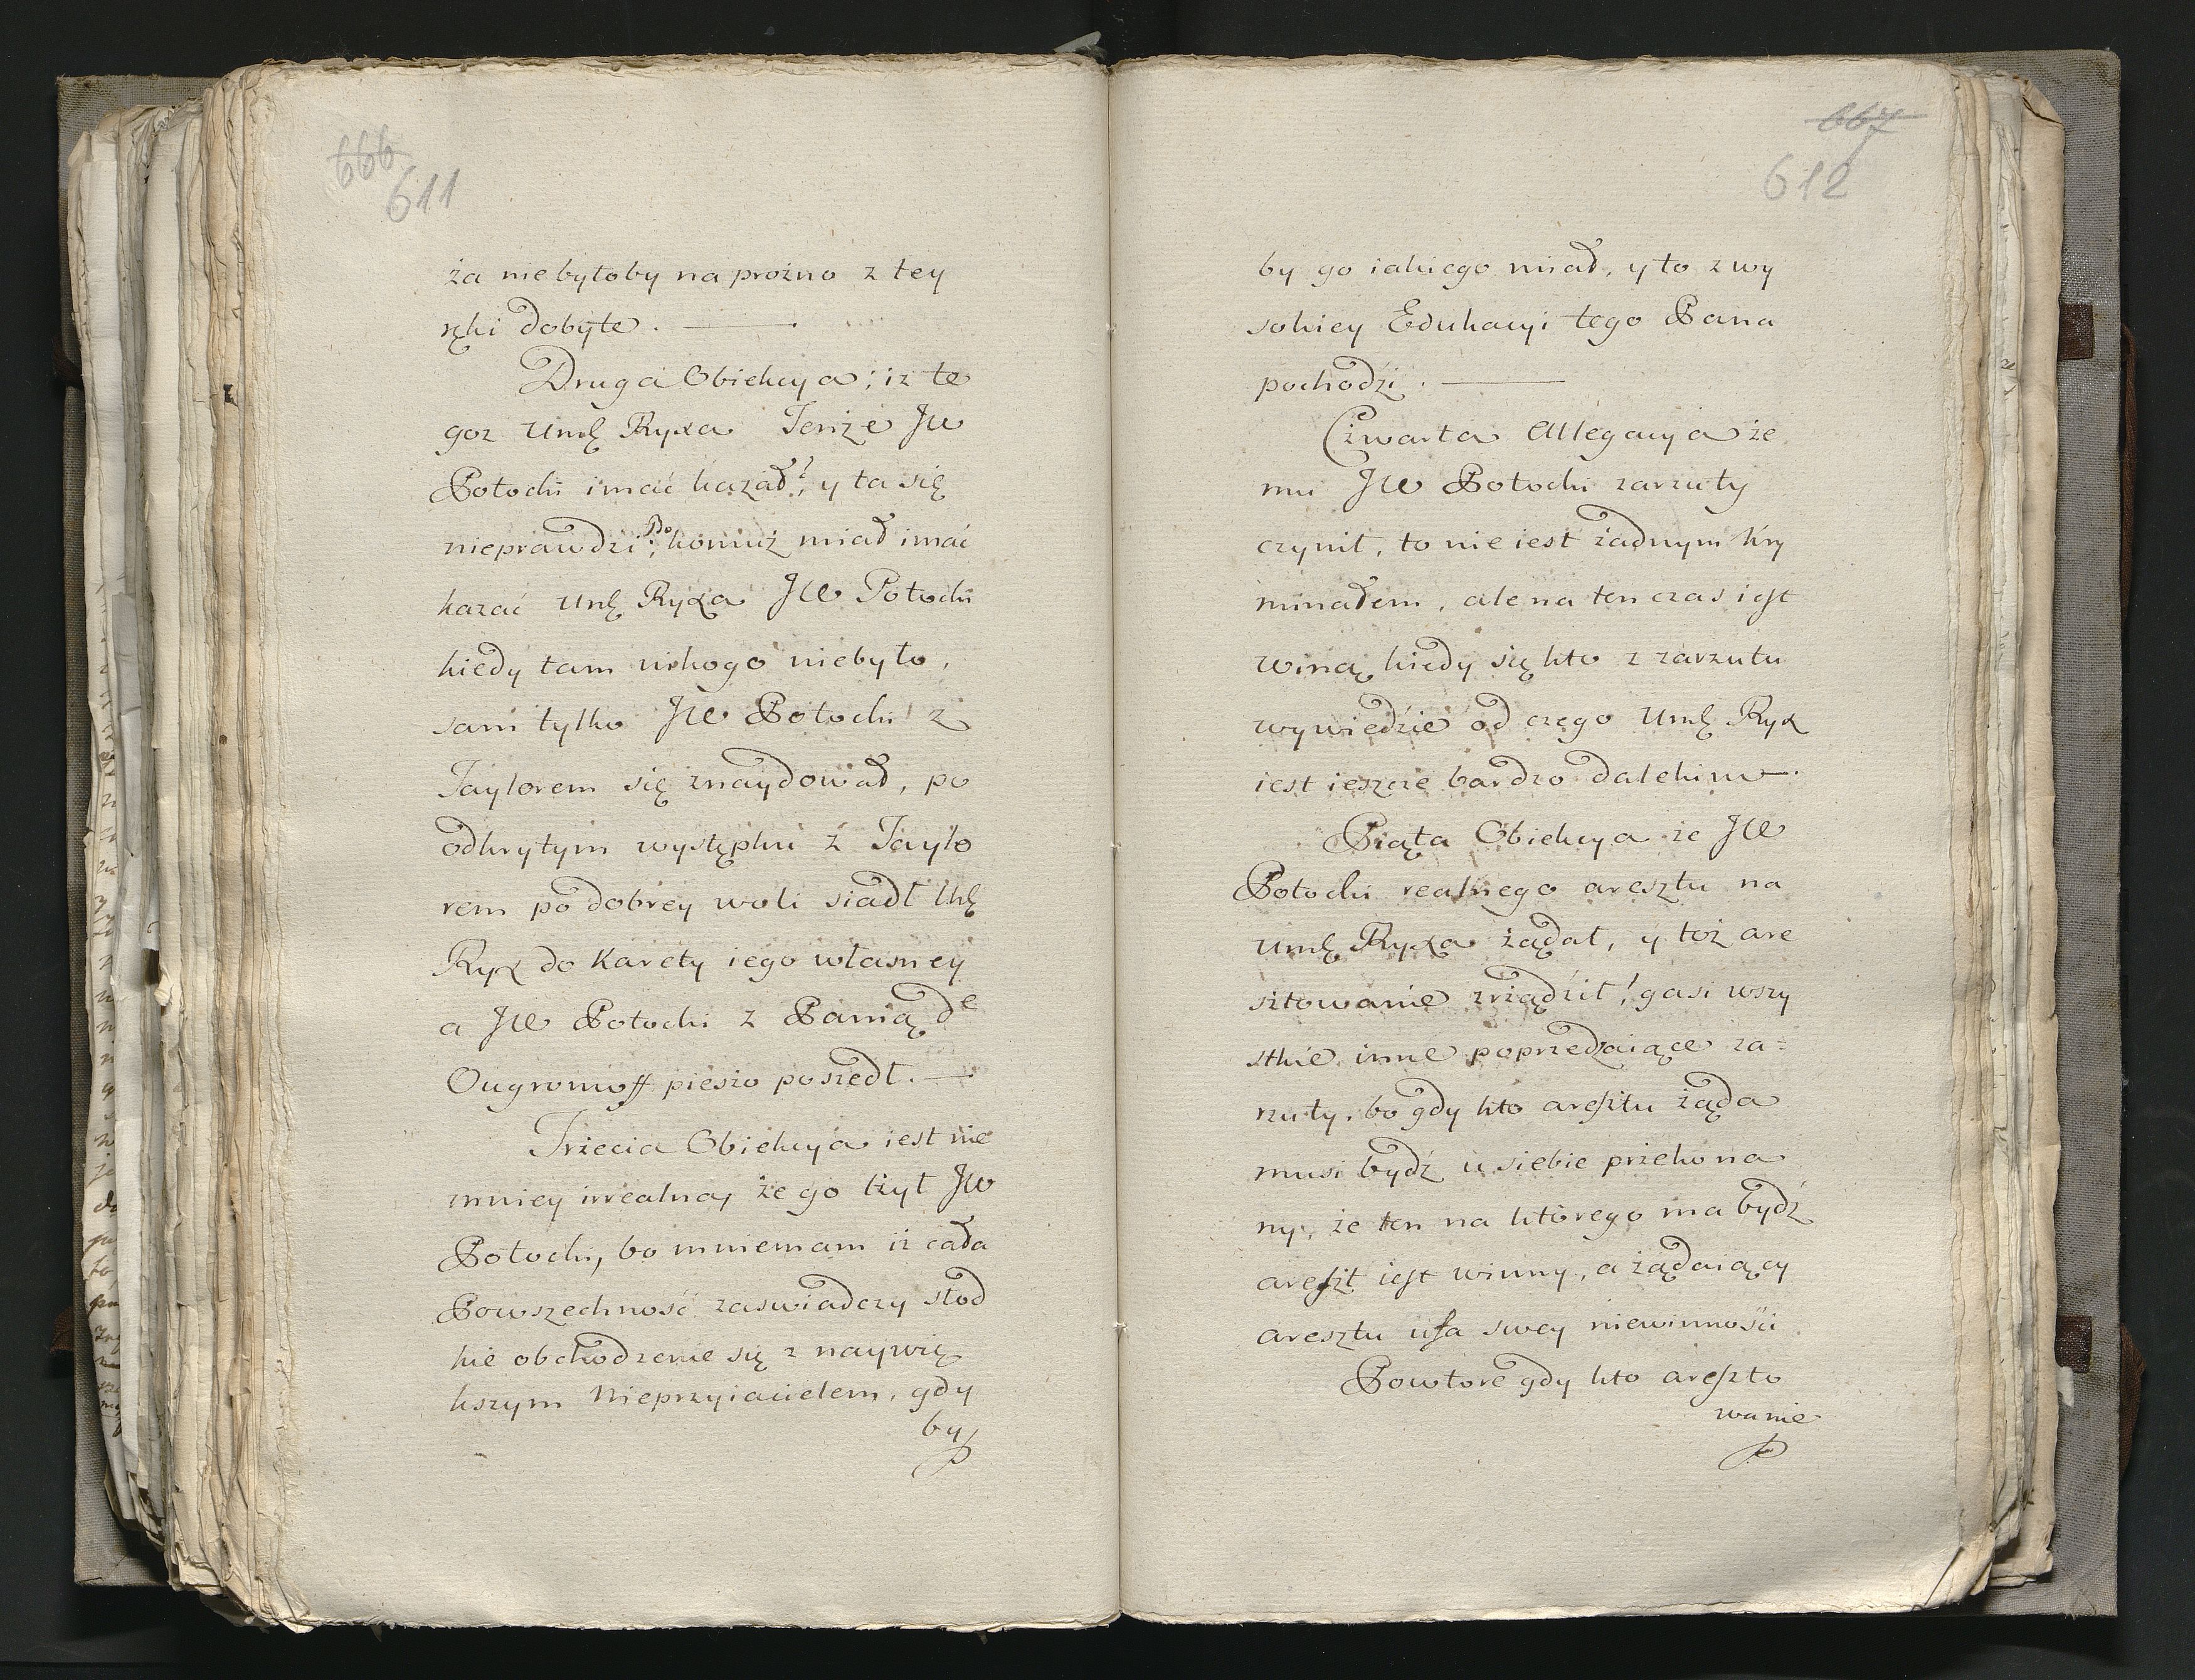 666
611
ża niebyłoby na prożno z tey
ręki dobyte. —
Druga Obiekcya; iz te
goz Urnę Ryxa Tenże JW
Potocki imać kazał?, y ta się
nieprawdzi; Bo komuż miał imać
kazać Urnę Ryxa JW Potocki
kiedy tam nikogo niebyło,
sam tylko JW Potocki z
Taylorem się znaydował, po
odkrytym występku z Taylo
rem po dobrey woli siadł
Ryx do Karety iego własney
a JW Potocki z Panią de
Ougrumoff pieszo poszedł. —
Trzecia Obiekcya iest nie
mniey irrealna, że go lżył JW
Potocki, bo mniemam iż cała
Powszechność zaswiadczy słod
kie obchodzenie się z naywię
kszym Nieprzyiacielem, gdy
by
667
612
by go iakiego miał, y to z wy
sokiey Edukacyi tego Pana
pochodzi. —
Czwarta Allegacya że
mu JW Potocki zarzuty
czynił, to nie iest żadnym kry
minałem, ale na ten czas iest
winą kiedy się kto z zarzutu
wywiedzie od czego Urnę Ryx
iest ieszcze bardzo dalekim —.
Piąta Obiekcya że JW
Potocki realnego aresztu na
Urnę Ryxa żądał, y toż are
sztowanie zrządził! gasi wszy
stkie inne poprzedzaiące za=
rzuty, bo gdy kto aresztu żąda
musi bydź u siebie przekona
ny, że ten na którego ma bydź
areszt iest winny, a żądaiący
aresztu ufa swey niewinności
Powtore gdy kto areszto
wanie